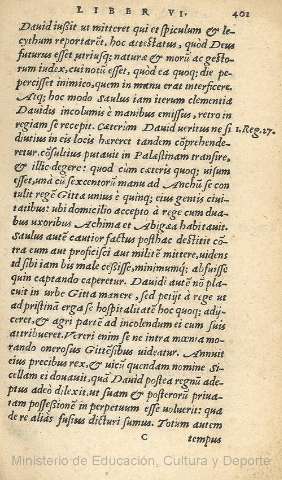 LIBER VI. 401
Dauid iußit ut mitteret qui et spiculum & le-
cythum reportarēt, hoc attestatus, quòd Deus
futurus esset utriusq; naturæ & morū ac gesto-
rum iudex, cui notū esset, quòd ea quoq; die pe-
percisset inimico, quem in manu erat interficere.
Atq; hoc modo Saulus iam iterum clementia
Dauidis incolumis è manibus emissus, retro in
regiam se recepit. Cæterùm Dauid ueritus ne si
1. Reg. 27.
diutius in eis locis hæreret tandem cōprehende-
retur, cōsultius putauit in Palæstinam transire,
& illic degere: quod cùm cæteris quoq; uisum
esset, unà cū sexcentorū manu ad Anchū se con
tulit regē Gitta unius è quinq; eius gentis ciui-
tatibus: ubi domicilio accepto à rege cum dua-
bus uxoribus Achima et Abigæa habitauit.
Saulus autē cautior factus posthac destitit cō-
tra eum aut proficisci aut militē mittere, uidens
ad sibi iam bis male ceßisse, minimumq; abfuisse
quin captando caperetur. Dauidi autē nō pla-
cuit in urbe Gitta manere, sed petijt à rege ut
ad pristinā erga se hospitalitatē hoc quoq; adij-
ceret, & agri partē ad incolendum et cum suis
attribueret. Vereri enim se ne intra mœnia mo-
rando onerosus Gittēsibus uideatur. Annuit
eius precibus rex, & uicū quendam nomine Si-
cellam ei donauit, quā Dauid postea regnū ade-
ptus adeò dilexit, ut suam & posteroru priua-
tam possessionē in perpetuum esse uoluerit: qua
de re aliàs fusius dicturi sumus. Totum autem
C tempus
Ministerio de Educación, Cultura y Deporte